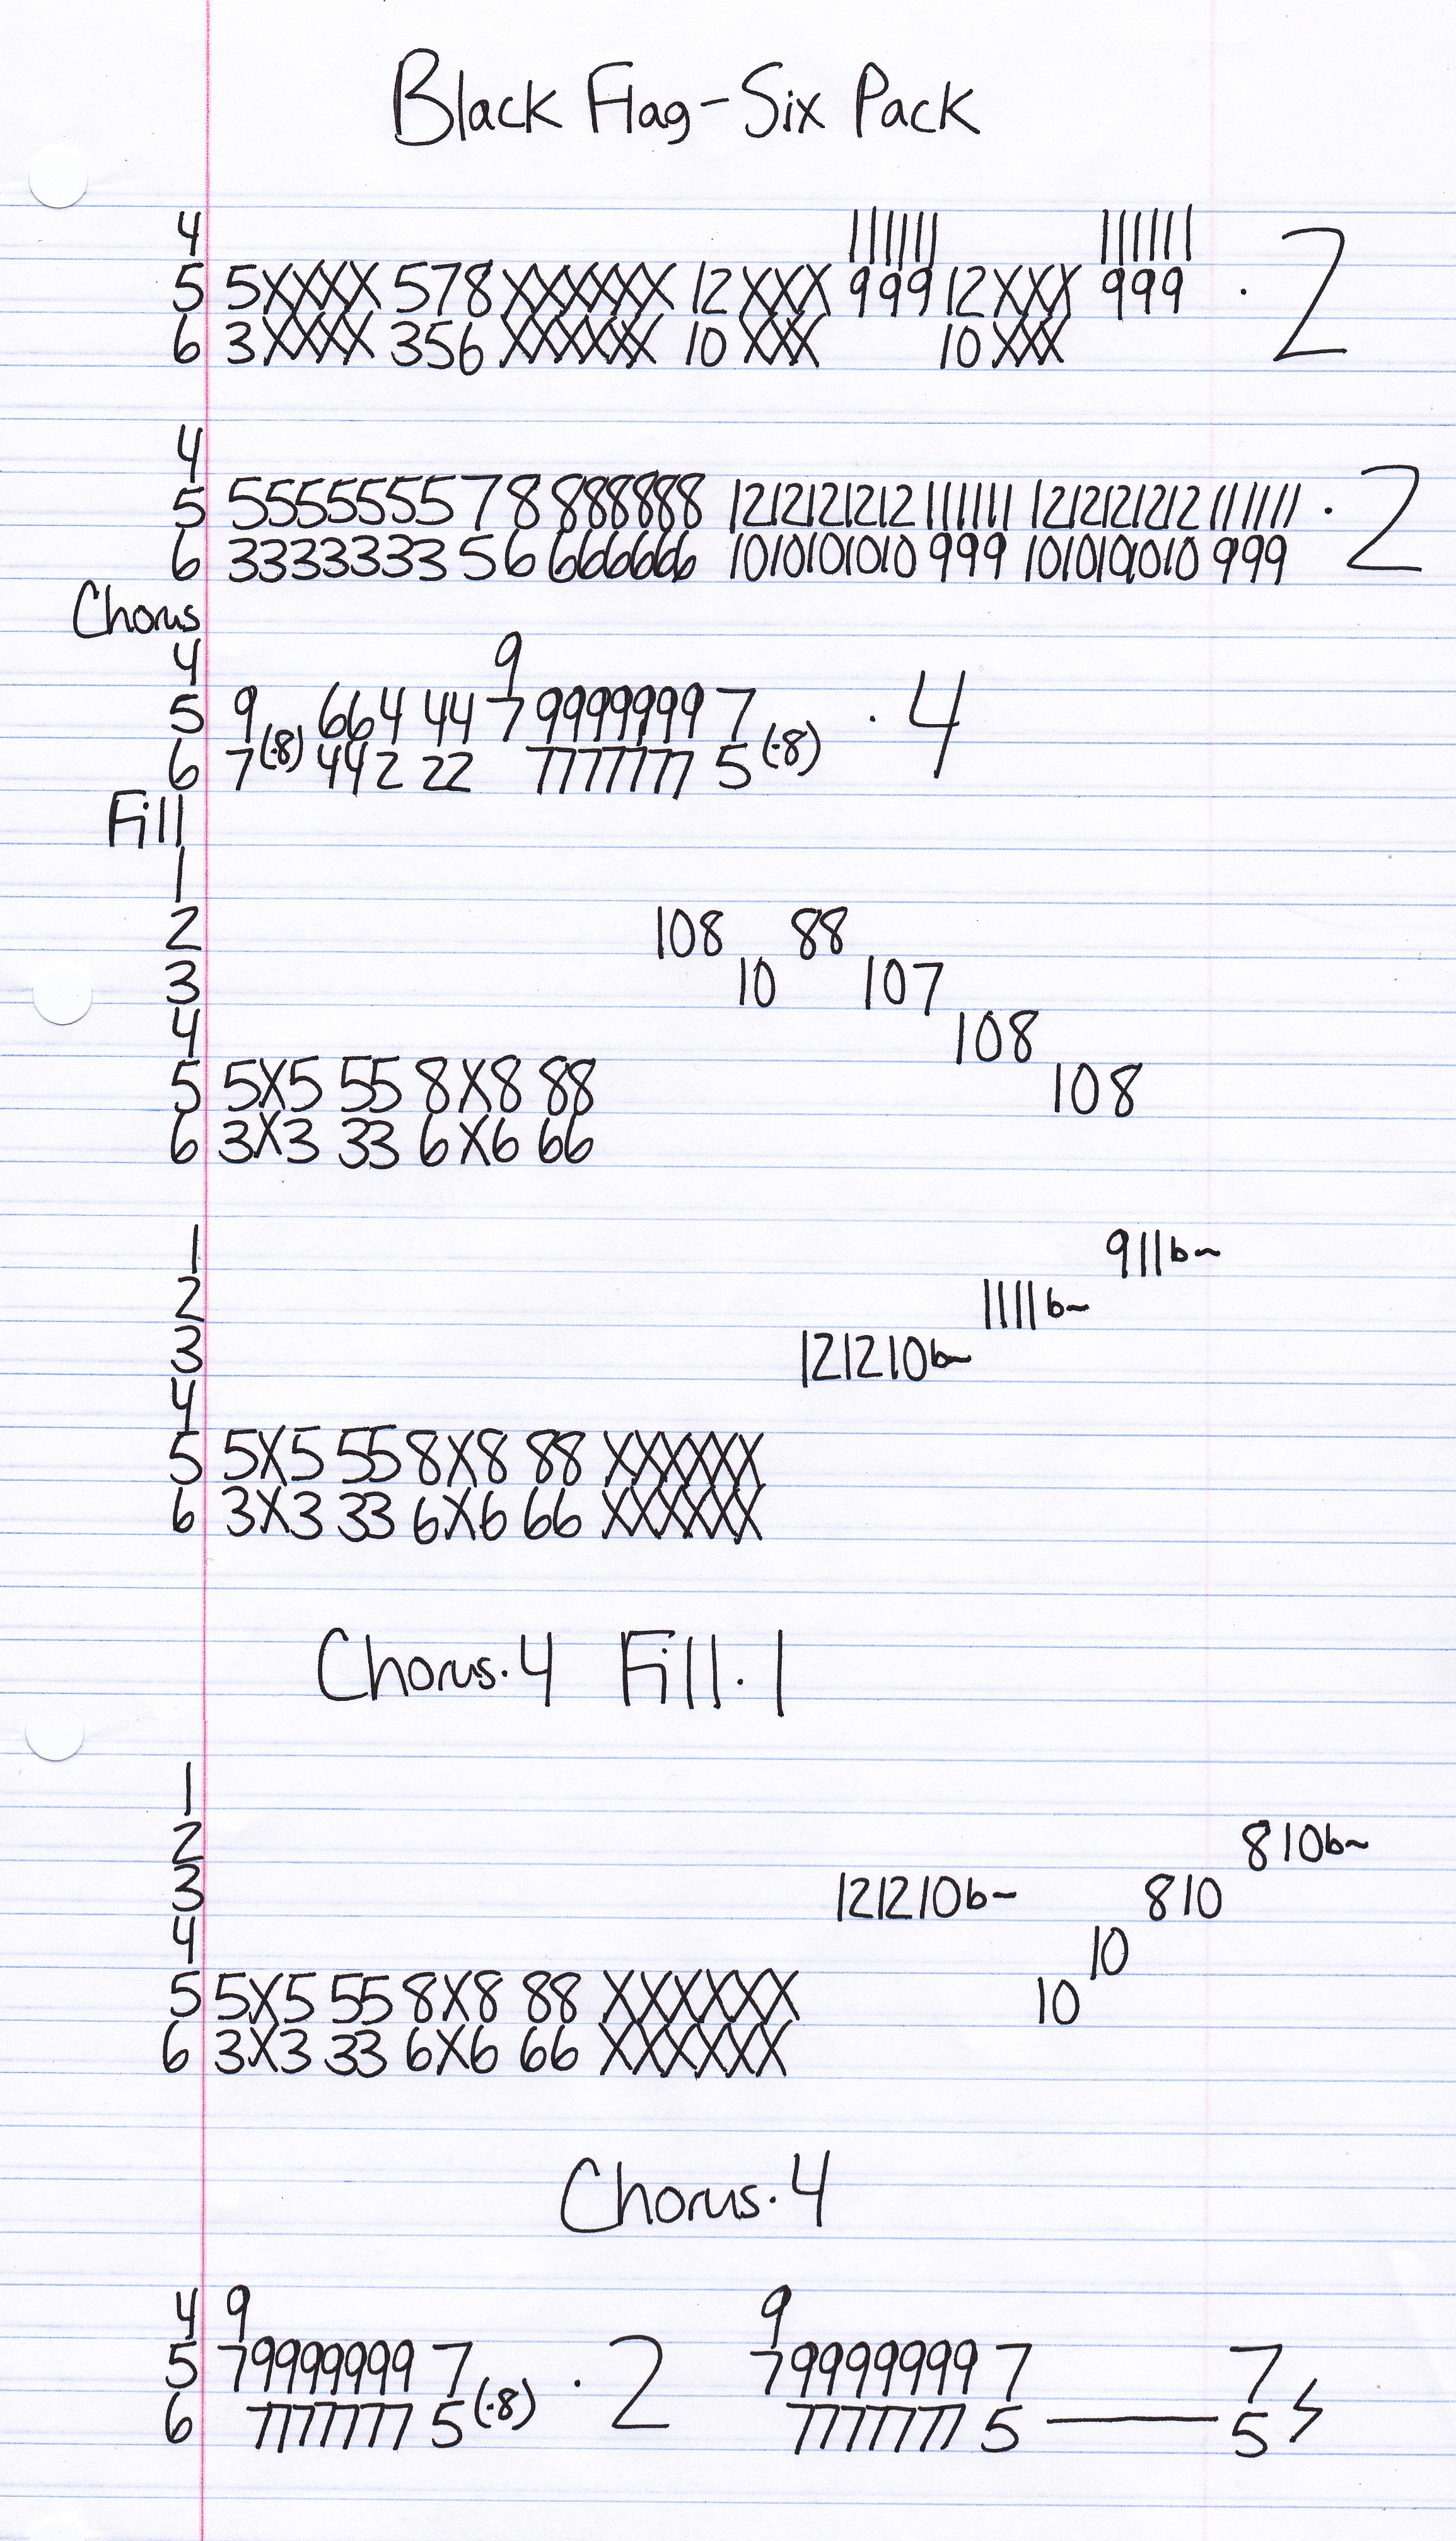 Black Flag-Six Pack
4 111111 111111
5 5XXXX 578 XXXXXX 12 XXX 999 12 XXX 999 · 2
6 3XXXX 356 XXXXX 10 XXX 10 XXX
4
5 5555555 7 8 888888 1212121212 111111 1212121212 111111 · 2
6 3333333 5 6 666666 1010101010 999 1010101010 999
Chorus
4 9
5 9 664 44 7 9999999 7 · 4
6 7(·8) 442 22 7777777 5(·8)
Fill
1
2 108 88
3 10 107
4 108
5 5X5 55 8X8 88 108
6 3X3 33 6X6 66
1 911b~
2 1111b~
3 121210b~
4
5 5X5 55 8X8 88 XXXXXX
6 3X3 33 6X6 66 XXXXXX
Chorus·4 Fill·1
1
2 810b~
3 121210b~ 810
4 10
5 5X5 55 8X8 88 XXXXXX 10
6 3X3 33 6X6 66 XXXXXX
Chorus·4
4 9 9
5 79999999 7 · 2 799999999 7 7
6 7777777 5(·8) 7777777 5 — 5